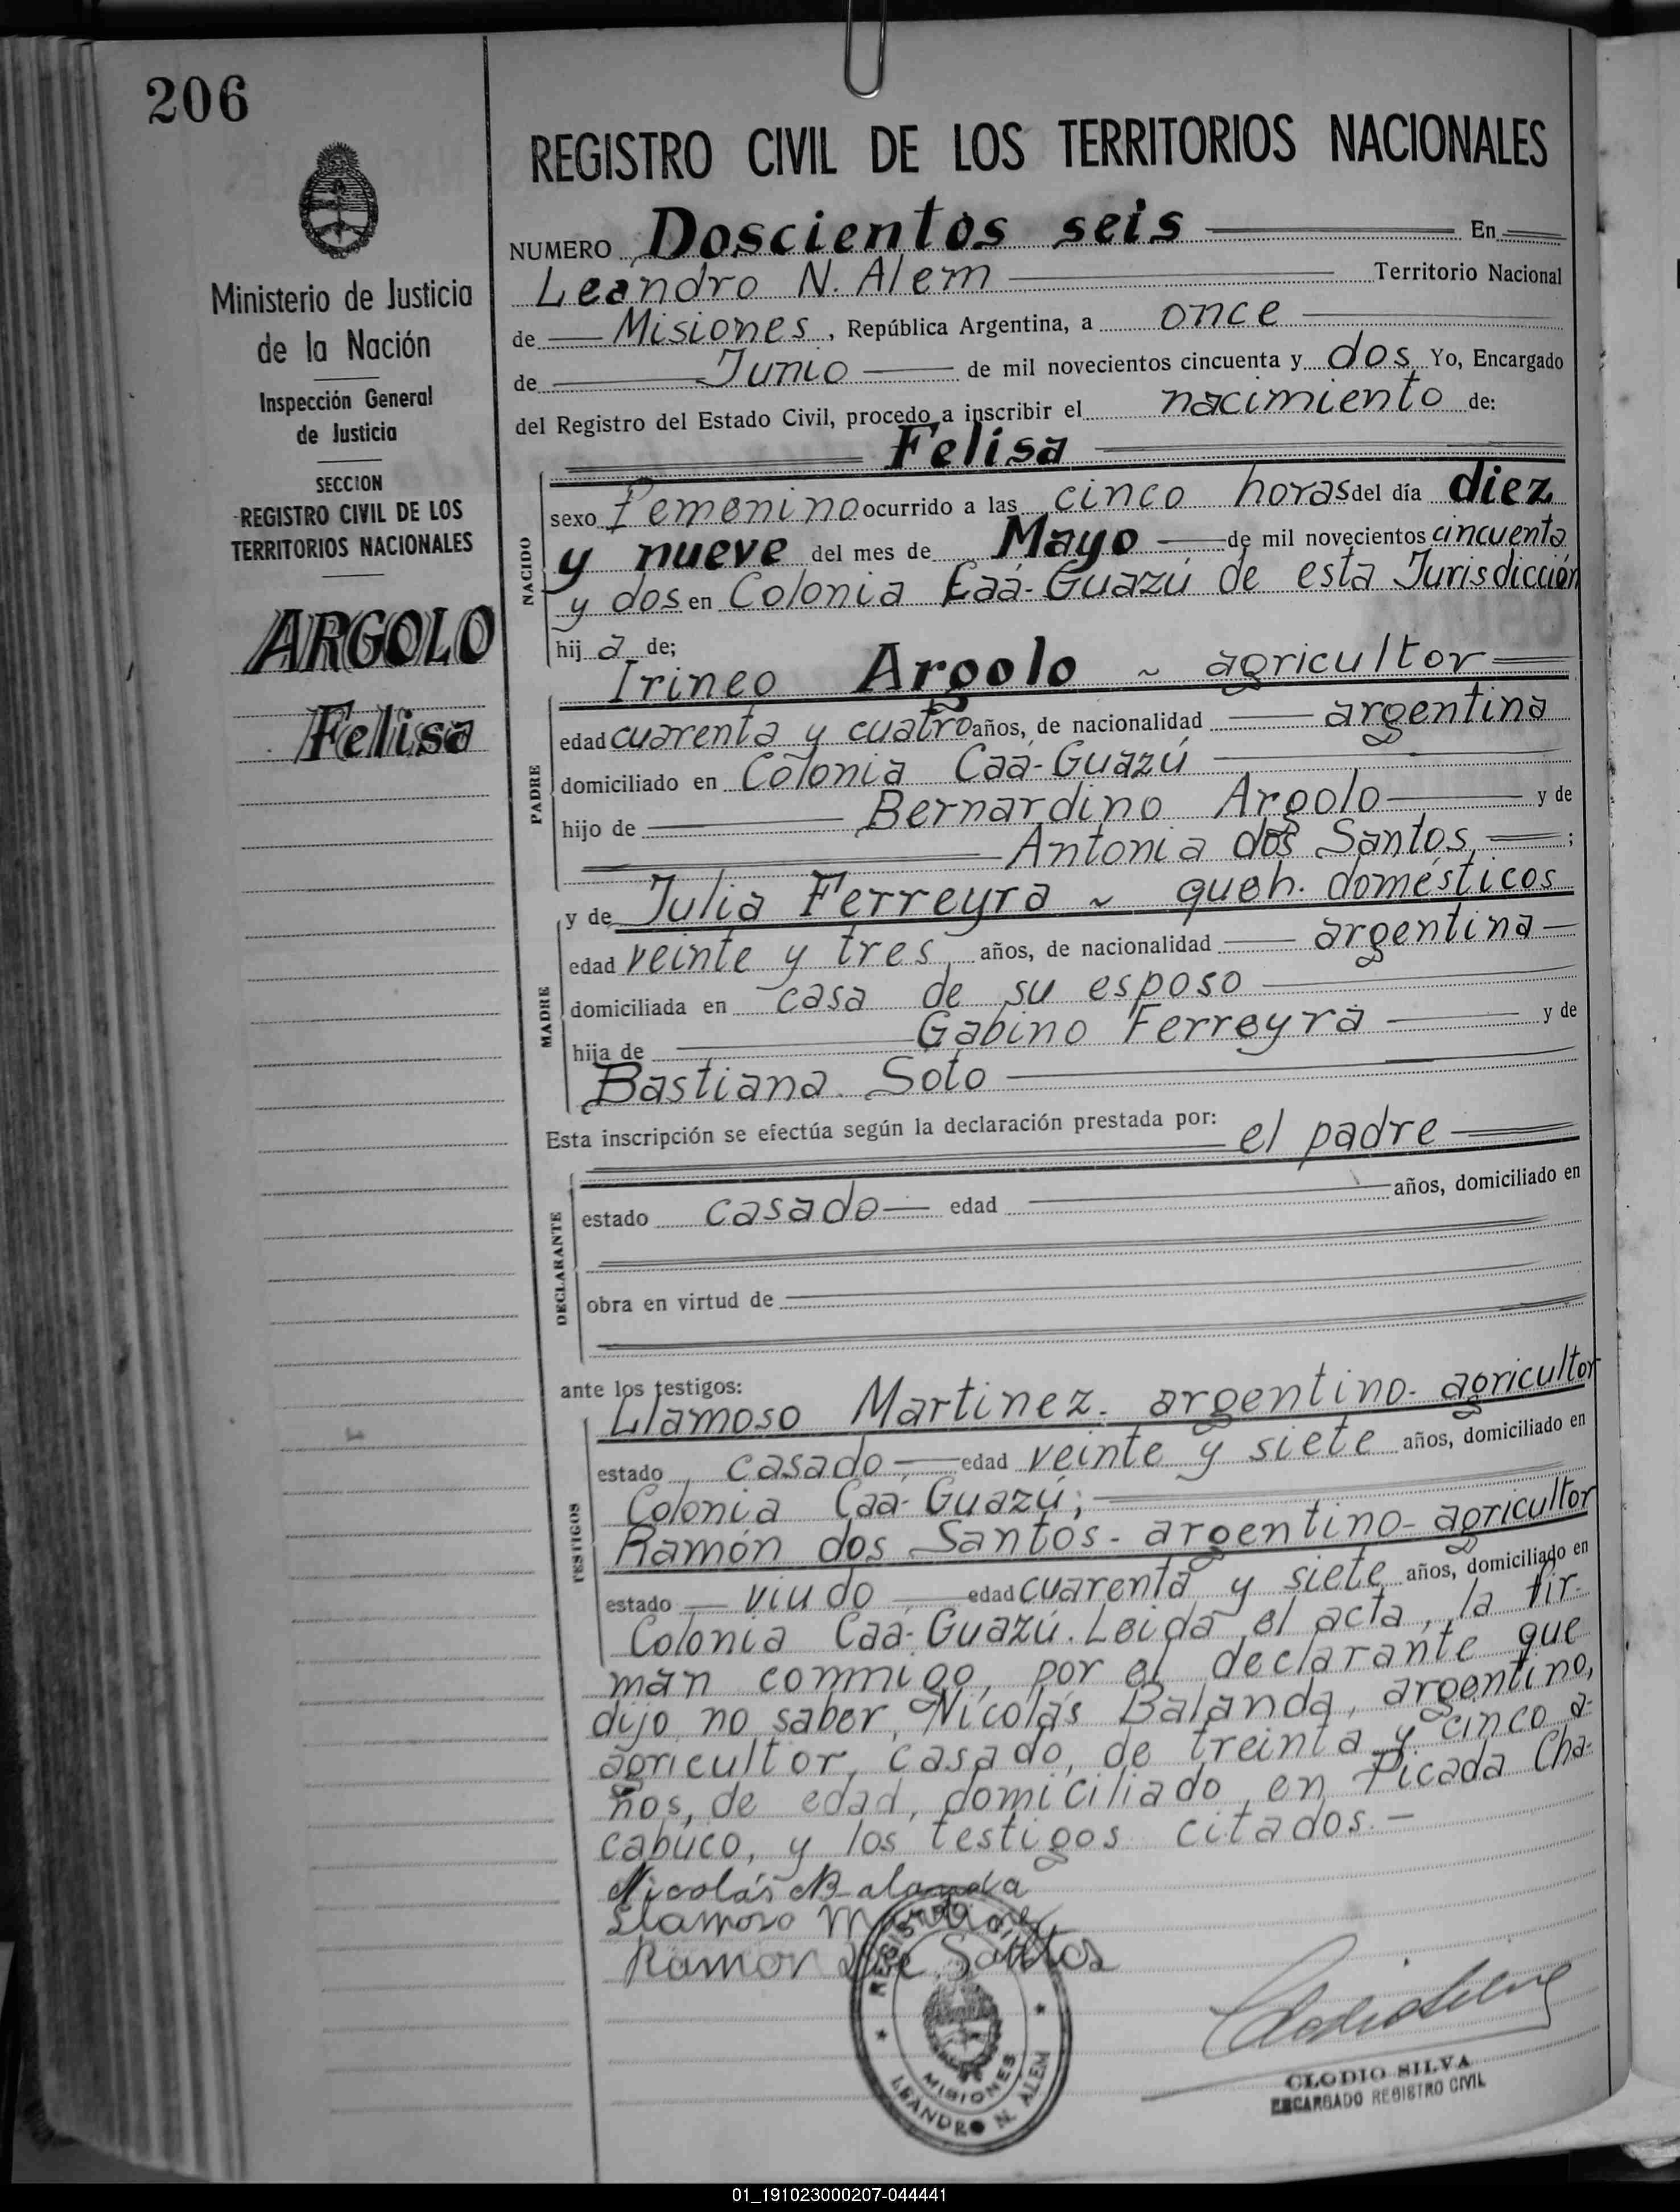 206
Ministerio de Justicia
de la Nación
Inspección General
de Justicia
SECCION
REGISTRO CIVIL DE LOS
TERRITORIOS NACIONALES
ARGOLO
Felisa
REGISTRO CIVIL DE LOS TERRITORIOS NACIONALES
NUMERO Doscientos seis En
Leandro N. Alem Territorio Nacional
de Misiones, República Argentina, a once
de Junio de mil novecientos cincuenta y dos Yo, Encargado
del Registro del Estado Civil, procedo a inscribir el nacimiento de:
Felisa
NACIDO
sexo Femenino ocurrido a las cinco horas del día diez
y nueve del mes de Mayo de mil novecientos cincuenta
y dos en Colonia Caá-Guazú de esta Jurisdicción
hij a de;
Irineo Argolo ~ agricultor
PADRE
edad cuarenta y cuatro años, de nacionalidad argentina
domiciliado en Colonia Caá-Guazú
hijo de Bernardino Argolo y de
Antonia dos Santos ;
y de Julia Ferreyra ~ queh. domésticos
MADRE
edad veinte y tres años, de nacionalidad argentina
domiciliada en casa de su esposo
hija de Gabino Ferreyra y de
Bastiana Soto
Esta inscripción se efectúa según la declaración prestada por: el padre
DECLARANTE
estado casado edad años, domiciliado en
obra en virtud de
ante los testigos:
Llamoso Martinez. argentino- agricultor
TESTIGOS
estado casado edad veinte y siete años, domiciliado en
Colonia Caá-Guazú;
Ramón dos Santos- argentino- agricultor
estado viudo edad cuarenta y siete años, domiciliado en
Colonia Caá-Guazú. Leida el acta, la fir-
man conmigo, por el declarante que
dijo no saber, Nicolás Balanda, argentino,
agricultor, casado, de treinta y cinco a-
ños, de edad, domiciliado en Picada Cha-
cabuco, y los testigos citados.-
Nicolás Balanda
Llamoso Martinez
Ramon dos Santos
REGISTRO CIVIL
MISIONES
LEANDRO N. ALEM
CLODIO SILVA
ENCARGADO REGISTRO CIVIL
01_191023000207-044441